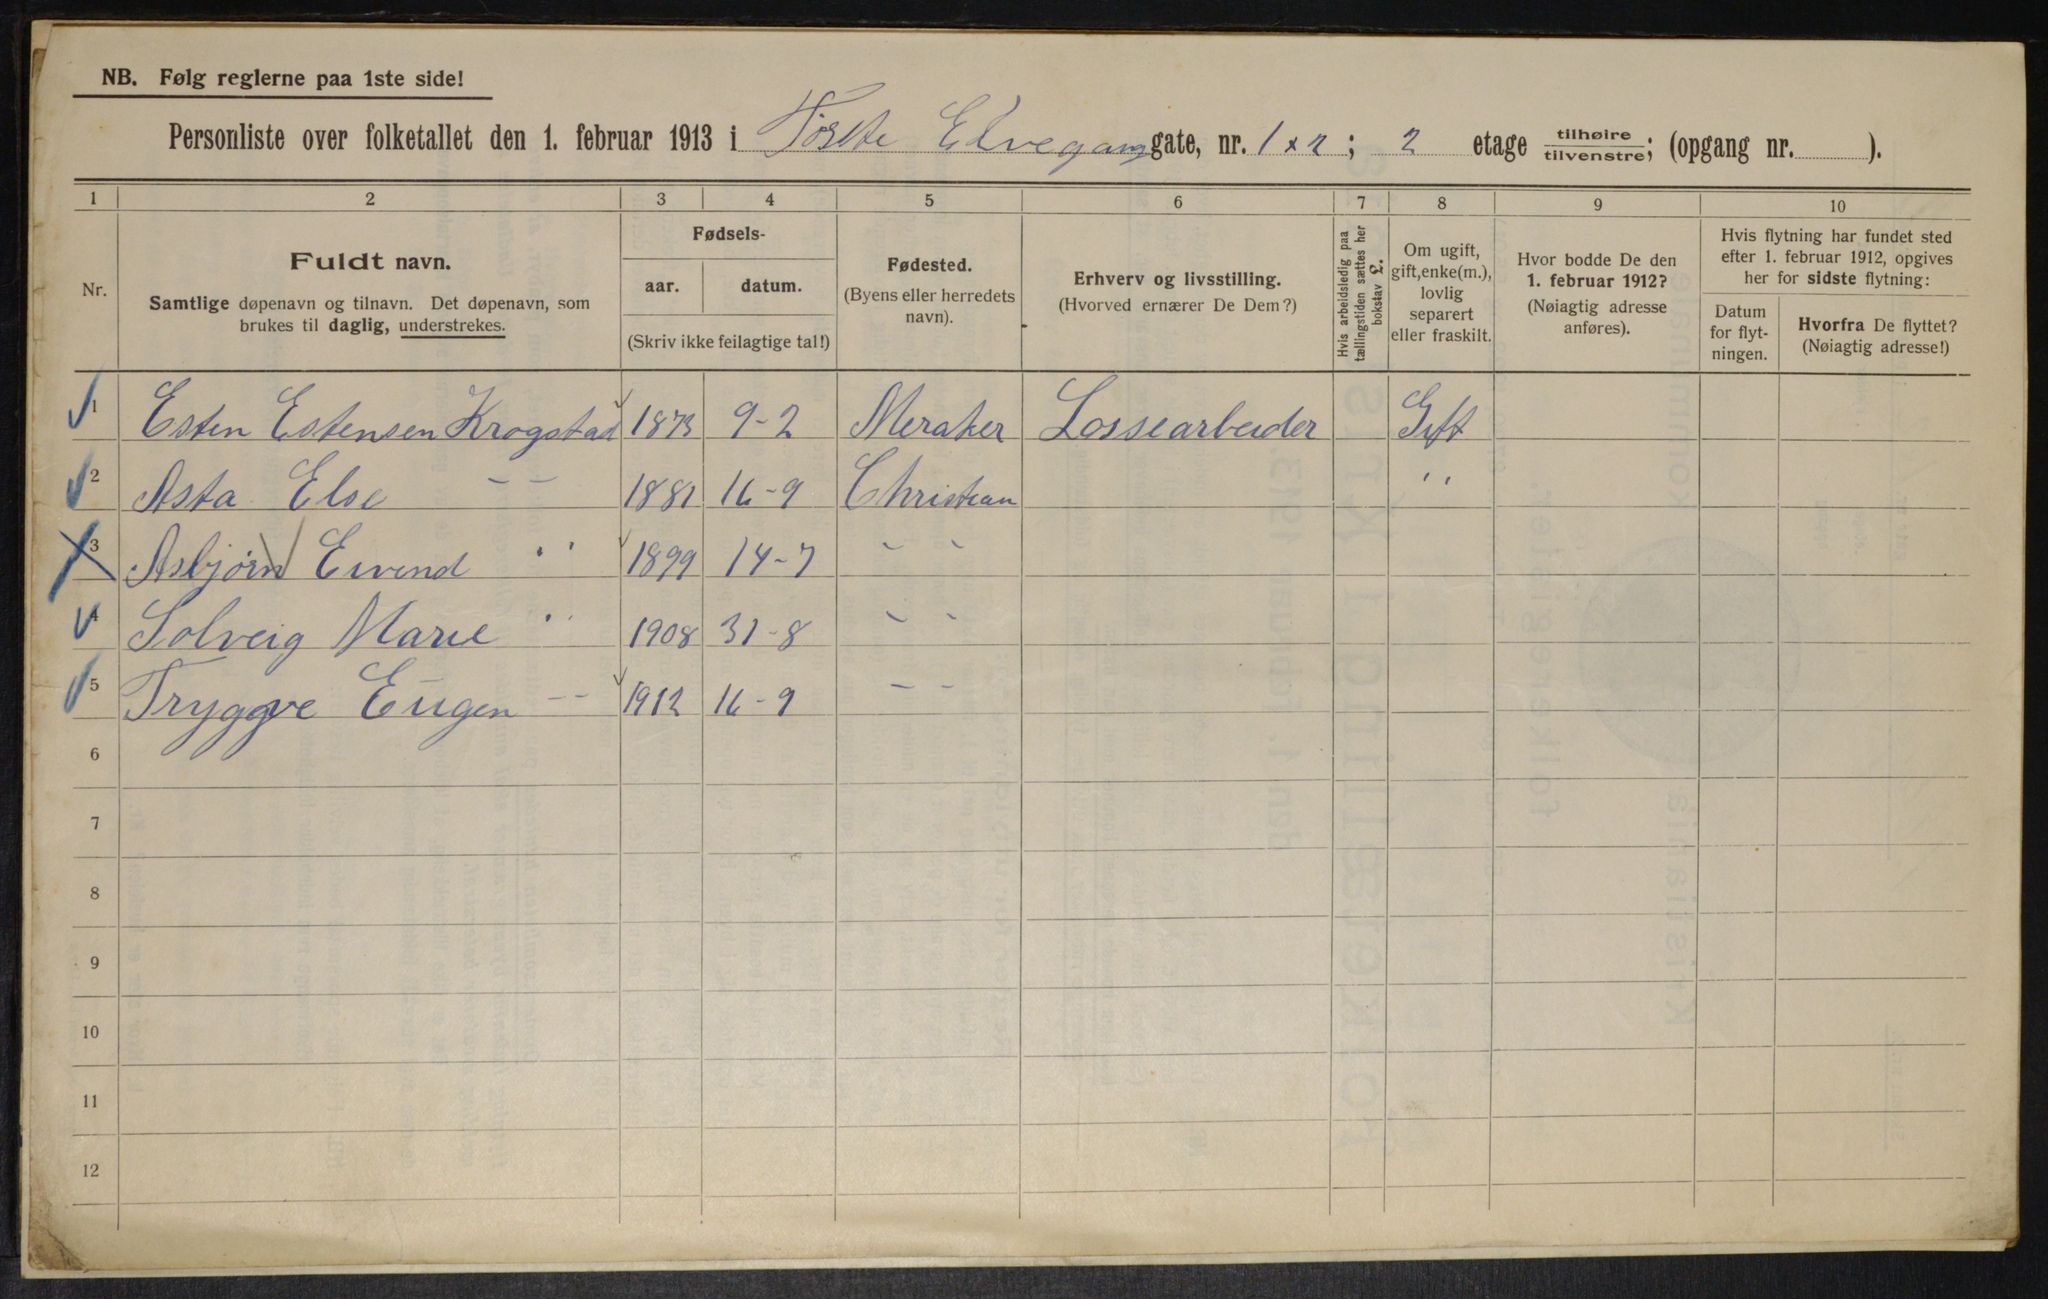 NB. Følg reglerne paa 1ste side!
Personliste over folketallet den 1. februar 1913 i Første Elvegang gate, nr. 1 x 2 ; 2 etage tilhøire / tilvenstre; (opgang nr. ).
1 2 3 4 5 6 7 8 9 10
Nr.
Fuldt navn.
Samtlige døpenavn og tilnavn. Det døpenavn, som
brukes til daglig, understrekes.
Fødsels-
aar. datum.
(Skriv ikke feilagtige tal!)
Fødested.
(Byens eller herredets
navn).
Erhverv og livsstilling.
(Hvorved ernærer De Dem?)
Hvis arbeidsledig paa
tællingstiden sættes her
bokstav L.
Om ugift,
gift, enke(m.),
lovlig
separert
eller fraskilt.
Hvor bodde De den
1. februar 1912?
(Nøiagtig adresse
anføres).
Hvis flytning har fundet sted
efter 1. februar 1912, opgives
her for sidste flytning:
Datum
for flyt-
ningen.
Hvorfra De flyttet?
(Nøiagtig adresse!)
1 Esten Estensen Krogstad 1873 9-2 Meraker Lossearbeider Gift
2 Asta Else - - 1881 16-9 Christian "
3 Asbjørn Eivend " 1899 14-7 - -
4 Solveig Marie " 1908 31-8 - -
5 Tryggve Eugen - - 1912 16-9 - -
6
7
8
9
10
11
12